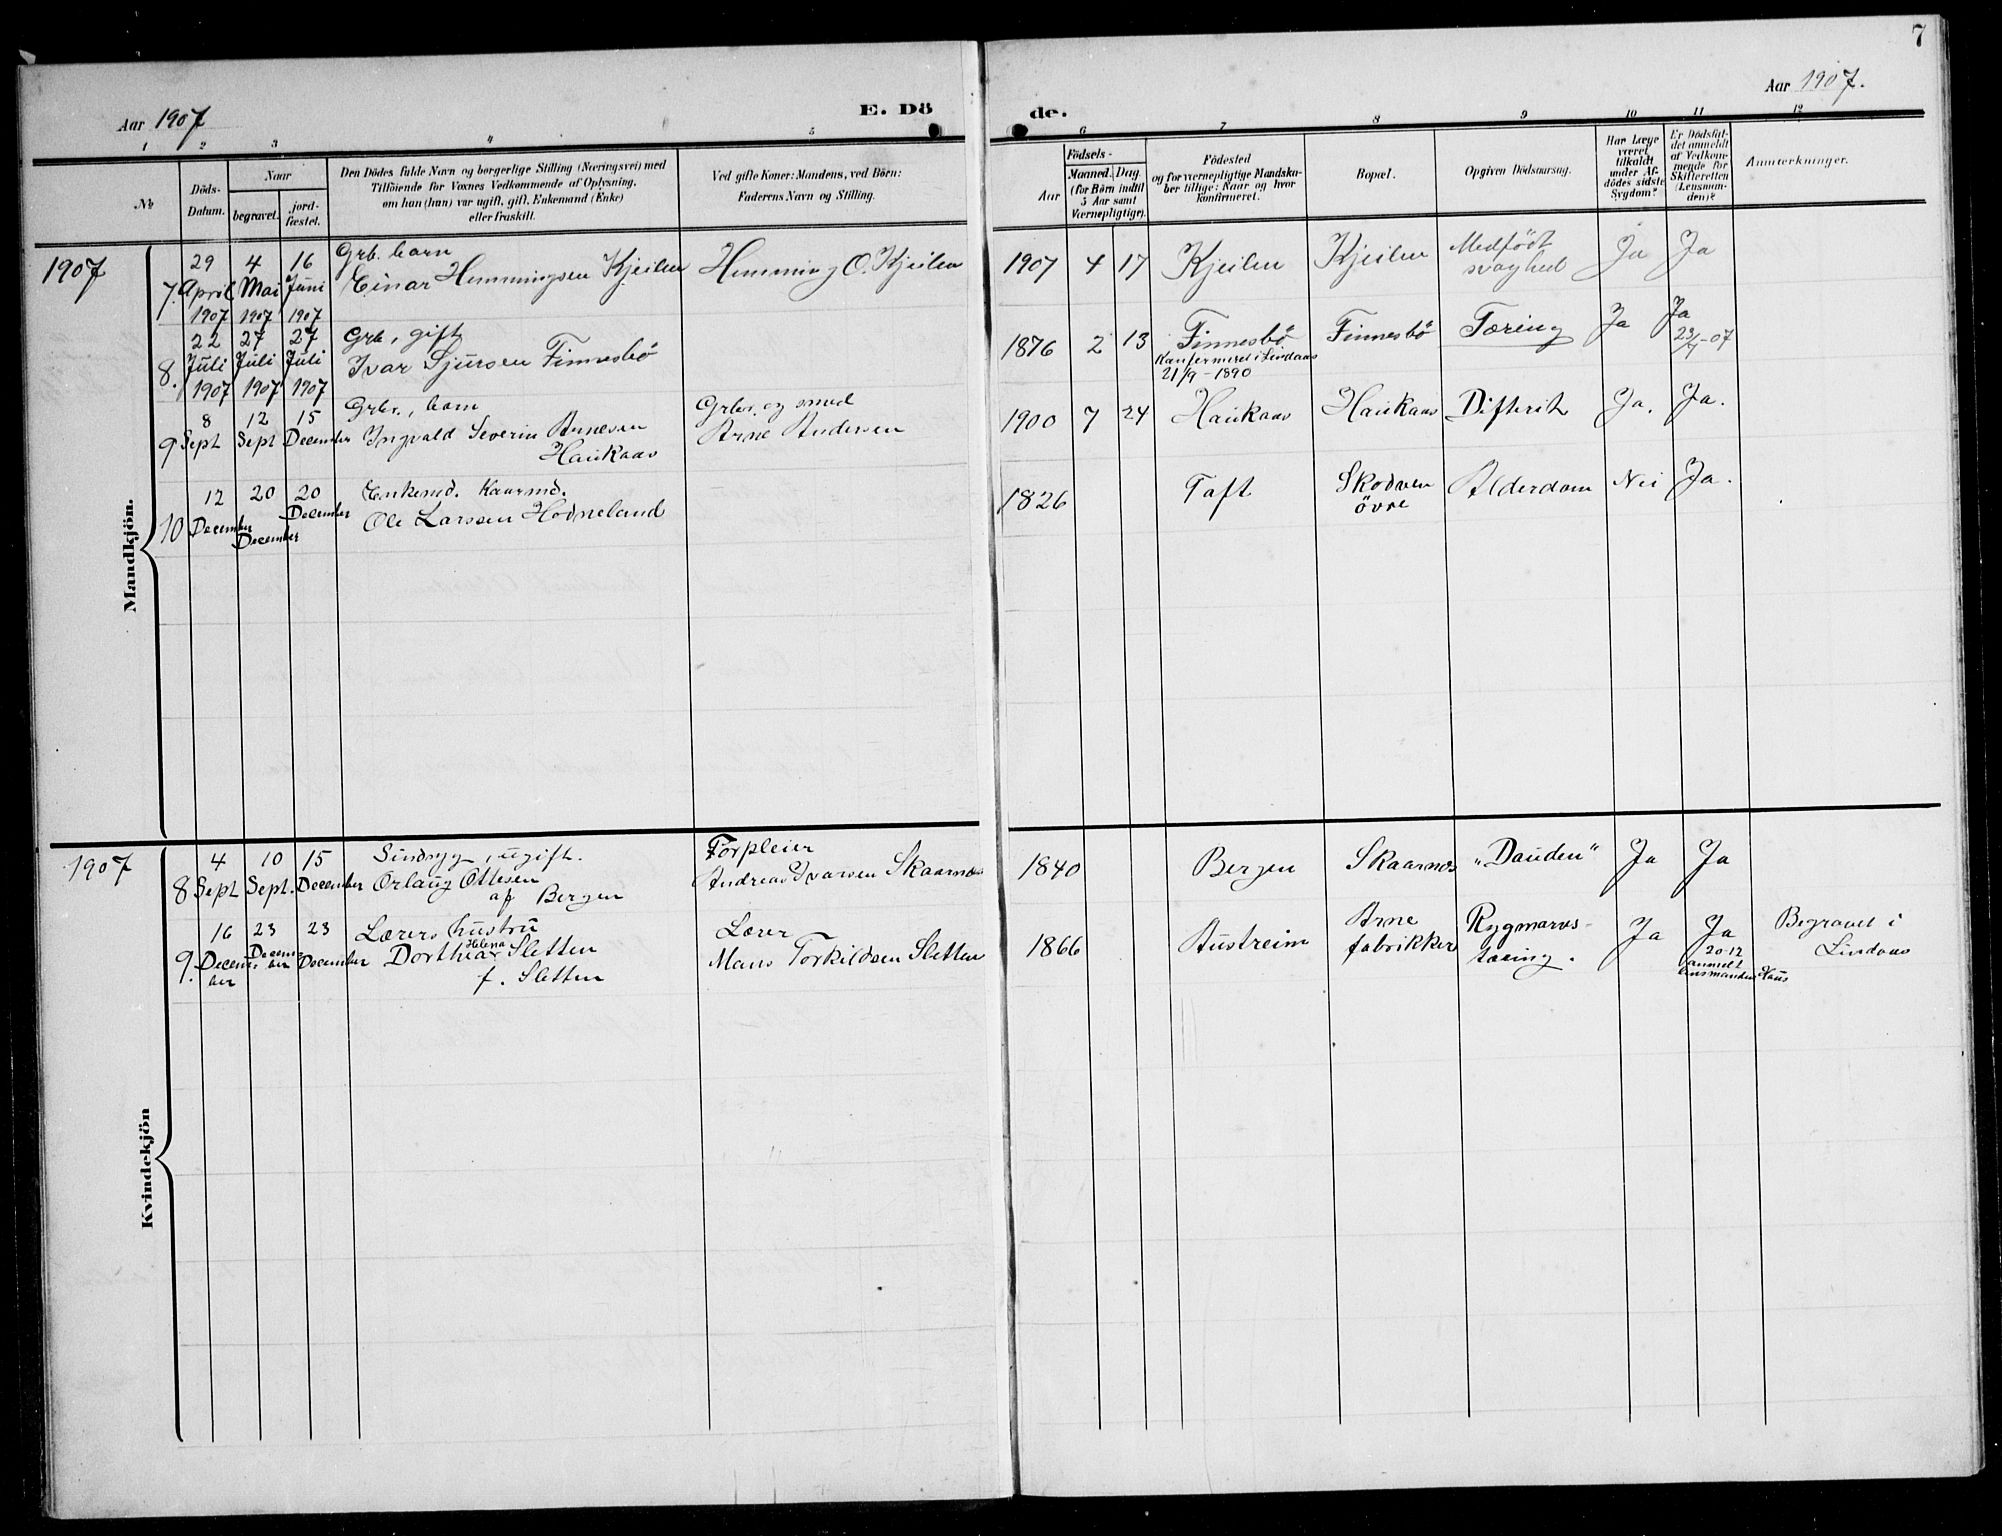 7
Aar 1907
E. Dö
de.
Aar 1907.
1 2 3 4 5
6 7 8 9 10 11 12
No
Döds-
Datum.
Naar
begravet.
jord-
fæstet.
Den Dödes fulde Navn og borgerlige Stilling (Næringsvei) med
Tilföiende for Voxnes Vedkommende af Oplysning,
om han (hun) var ugift, gift, Enkemand (Enke)
eller fraskilt.
Ved gifte Koner: Mandens, ved Börn:
Faderens Navn og Stilling.
Födsels-
Aar
Maaned.
Dag
(for Börn indtil
5 Aar samt
Værnepligtige).
Födested
og for værnepligtige Mandska-
ber tillige: Naar og hvor
konfirmeret.
Bopæl.
Opgiven Dödsaarsag.
Har Læge
været
tilkaldt
under Af-
dödes sidste
Sygdom?
Er Dödsfal-
det anmeldt
af Vedkom-
mende for
Skifteretten
(Lensman-
den)?
Anmærkninger.
Mandkjön.
1907
7. 29 April 1907 4 Mai 1907 16 Juni 1907
Grb. barn
Einar Hemmingsen Kjeilen
Hemming O. Kjeilen
1907 4 17 Kjeilen Kjeilen
Medfödt
svaghed
Ja Ja
8. 22 Juli 1907 27 Juli 1907 27 Juli 1907
Grb., gift
Ivar Sjursen Finnesbö
1876 2 13 Finnesbö
Konfermeret i Lindaas
21/9 - 1890
Finnesbö Tæring Ja Ja
23/7-07
9 8 Sept 12 Sept 15 December
Grbr., barn
Ingvald Severin Arnesen
Haukaas
Grbr. og smed
Arne Andersen
1900 7 24 Haukaas Haukaas Difterit Ja. Ja.
10 12 December 20 December 20 December
Enkemd. Kaarmd.
Ole Larssen Hodneland
1826 Taft
Skodven
övre
Alderdom Nei Ja.
Kvindekjön
1907
8 4 Sept 10 Sept. 15 December
Sindsyg, ugift.
Orlaug Ottesen
af Bergen
Forpleier
Andreas Ivarsen Skaarnes
1840 Bergen Skaarnes "Dauden" Ja Ja
9. 16 December 23 December 23 December
Lærers hustru
Helena
Dorthea Sletten
f. Sletten
Lærer
Mans Torkildsen Sletten
1866 Austreim
Arne
fabrikker
Rygmarvs-
tæring.
Ja Ja
20-12
anmelt
lensmanden Haus
Begravet i
Lindaas